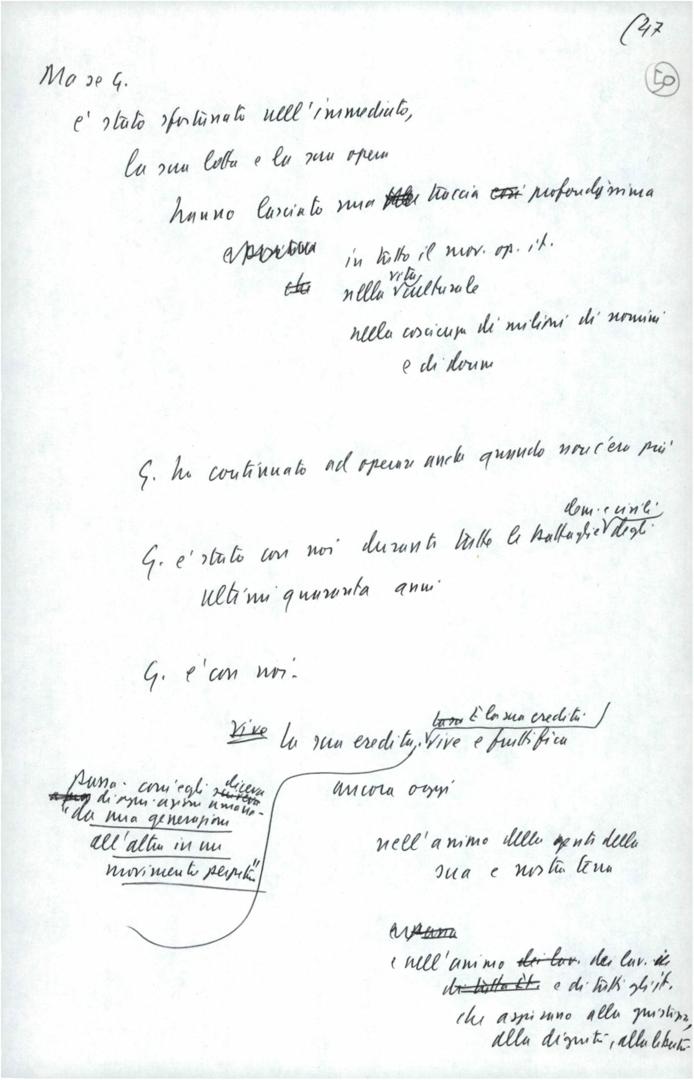 47
50
Ma se G.
e' stato sfortunato nell'immediato,
la sua lotta e la sua opera
hanno lasciato una traccia così profondissima
in tutto il mov. op. it.
che nella vita culturale
nella coscienza di milioni di uomini
e di donne
G. ha continuato ad operare anche quando non c'era più
dem. e civili
G. e' stato con noi durante tutte le battaglie degli
ultimi quaranta anni
G. e' con noi.
È la sua eredità
Vive la sua eredità. vive e fruttifica
ancora oggi
passa - com'egli diceva
di ogni azione umana -
"da una generazione
all'altra in un
movimento perpetuo"
nell'animo delle genti della
sua e nostra terra
e nell'animo dei lav. dei lav.
e di tutti gli it.
che aspirano alla giustizia,
alla dignità, alla libertà